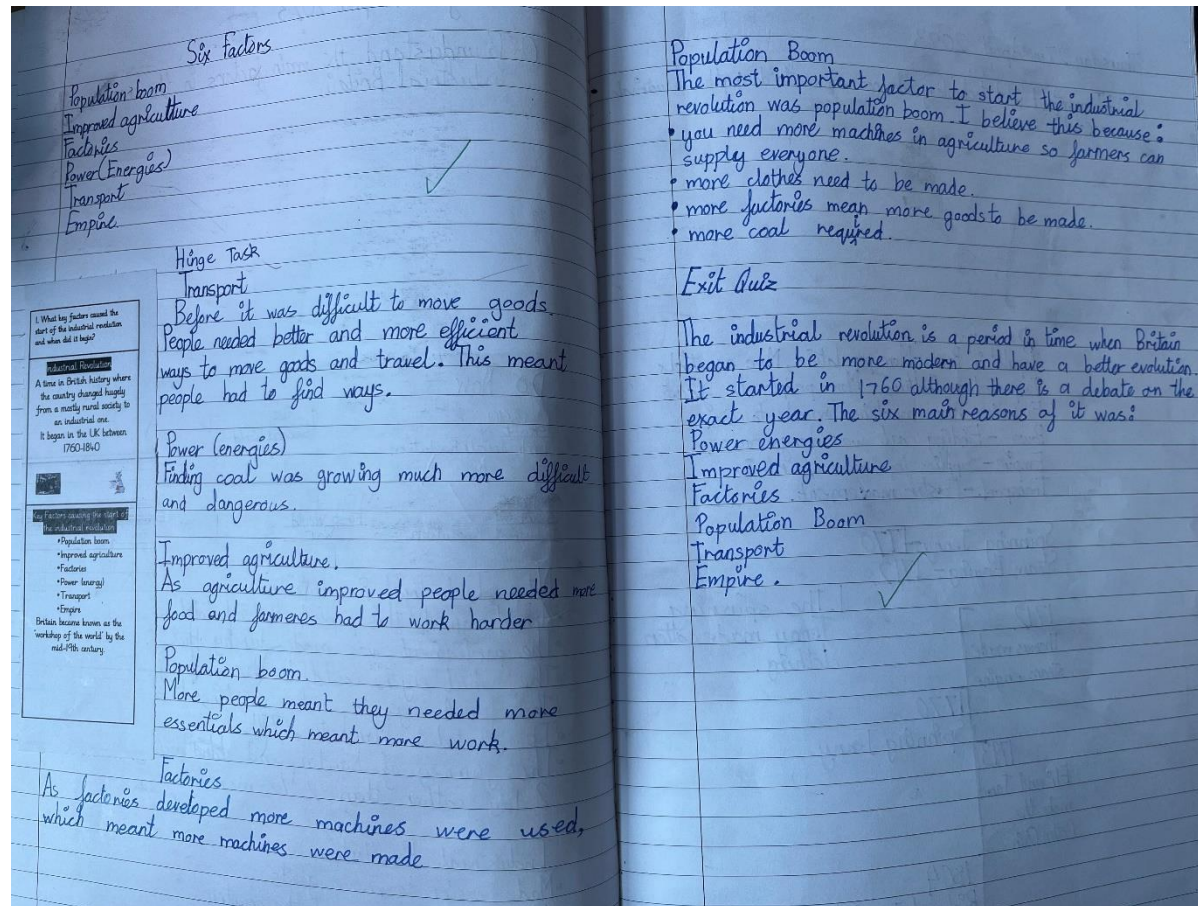 Six Factors
Population boom
Improved agriculture
Factories
Power (Energies)
Transport
Empire.
Hinge Task
Transport
Before it was difficult to move goods.
People needed better and more efficient
ways to move goods and travel. This meant
people had to find ways.
Power (energies)
Finding coal was growing much more difficult
and dangerous.
Improved agriculture.
As agriculture improved people needed more
food and farmeres had to work harder
Population boom.
More people meant they needed more
essentials which meant more work.
Factories
As factories developed more machines were used,
which meant more machines were made
1. What key factors caused the
start of the industrial revolution
and when did it begin?
Industrial Revolution
A time in British history where
the country changed hugely
from a mostly rural society to
an industrial one.
It began in the UK between
1760-1840
Key Factors causing the start of
the industrial revolution
•Population boom
•Improved agriculture
•Factories
•Power (energy)
•Transport
•Empire
Britain became known as the
'workshop of the world' by the
mid-19th century.
Population Boom
The most important factor to start the industrial
revolution was population boom. I believe this because:
• you need more machines in agriculture so farmers can
supply everyone.
• more clothes need to be made.
• more factories mean more goods to be made.
• more coal required.
Exit Quiz
The industrial revolution is a period in time when Britain
began to be more modern and have a better evolution.
It started in 1760 although there is a debate on the
exact year. The six main reasons of it was:
Power energies
Improved agriculture
Factories.
Population Boom
Transport
Empire.